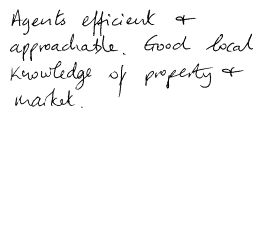 Agents efficient &
approachable. Good local
knowledge of property &
market.